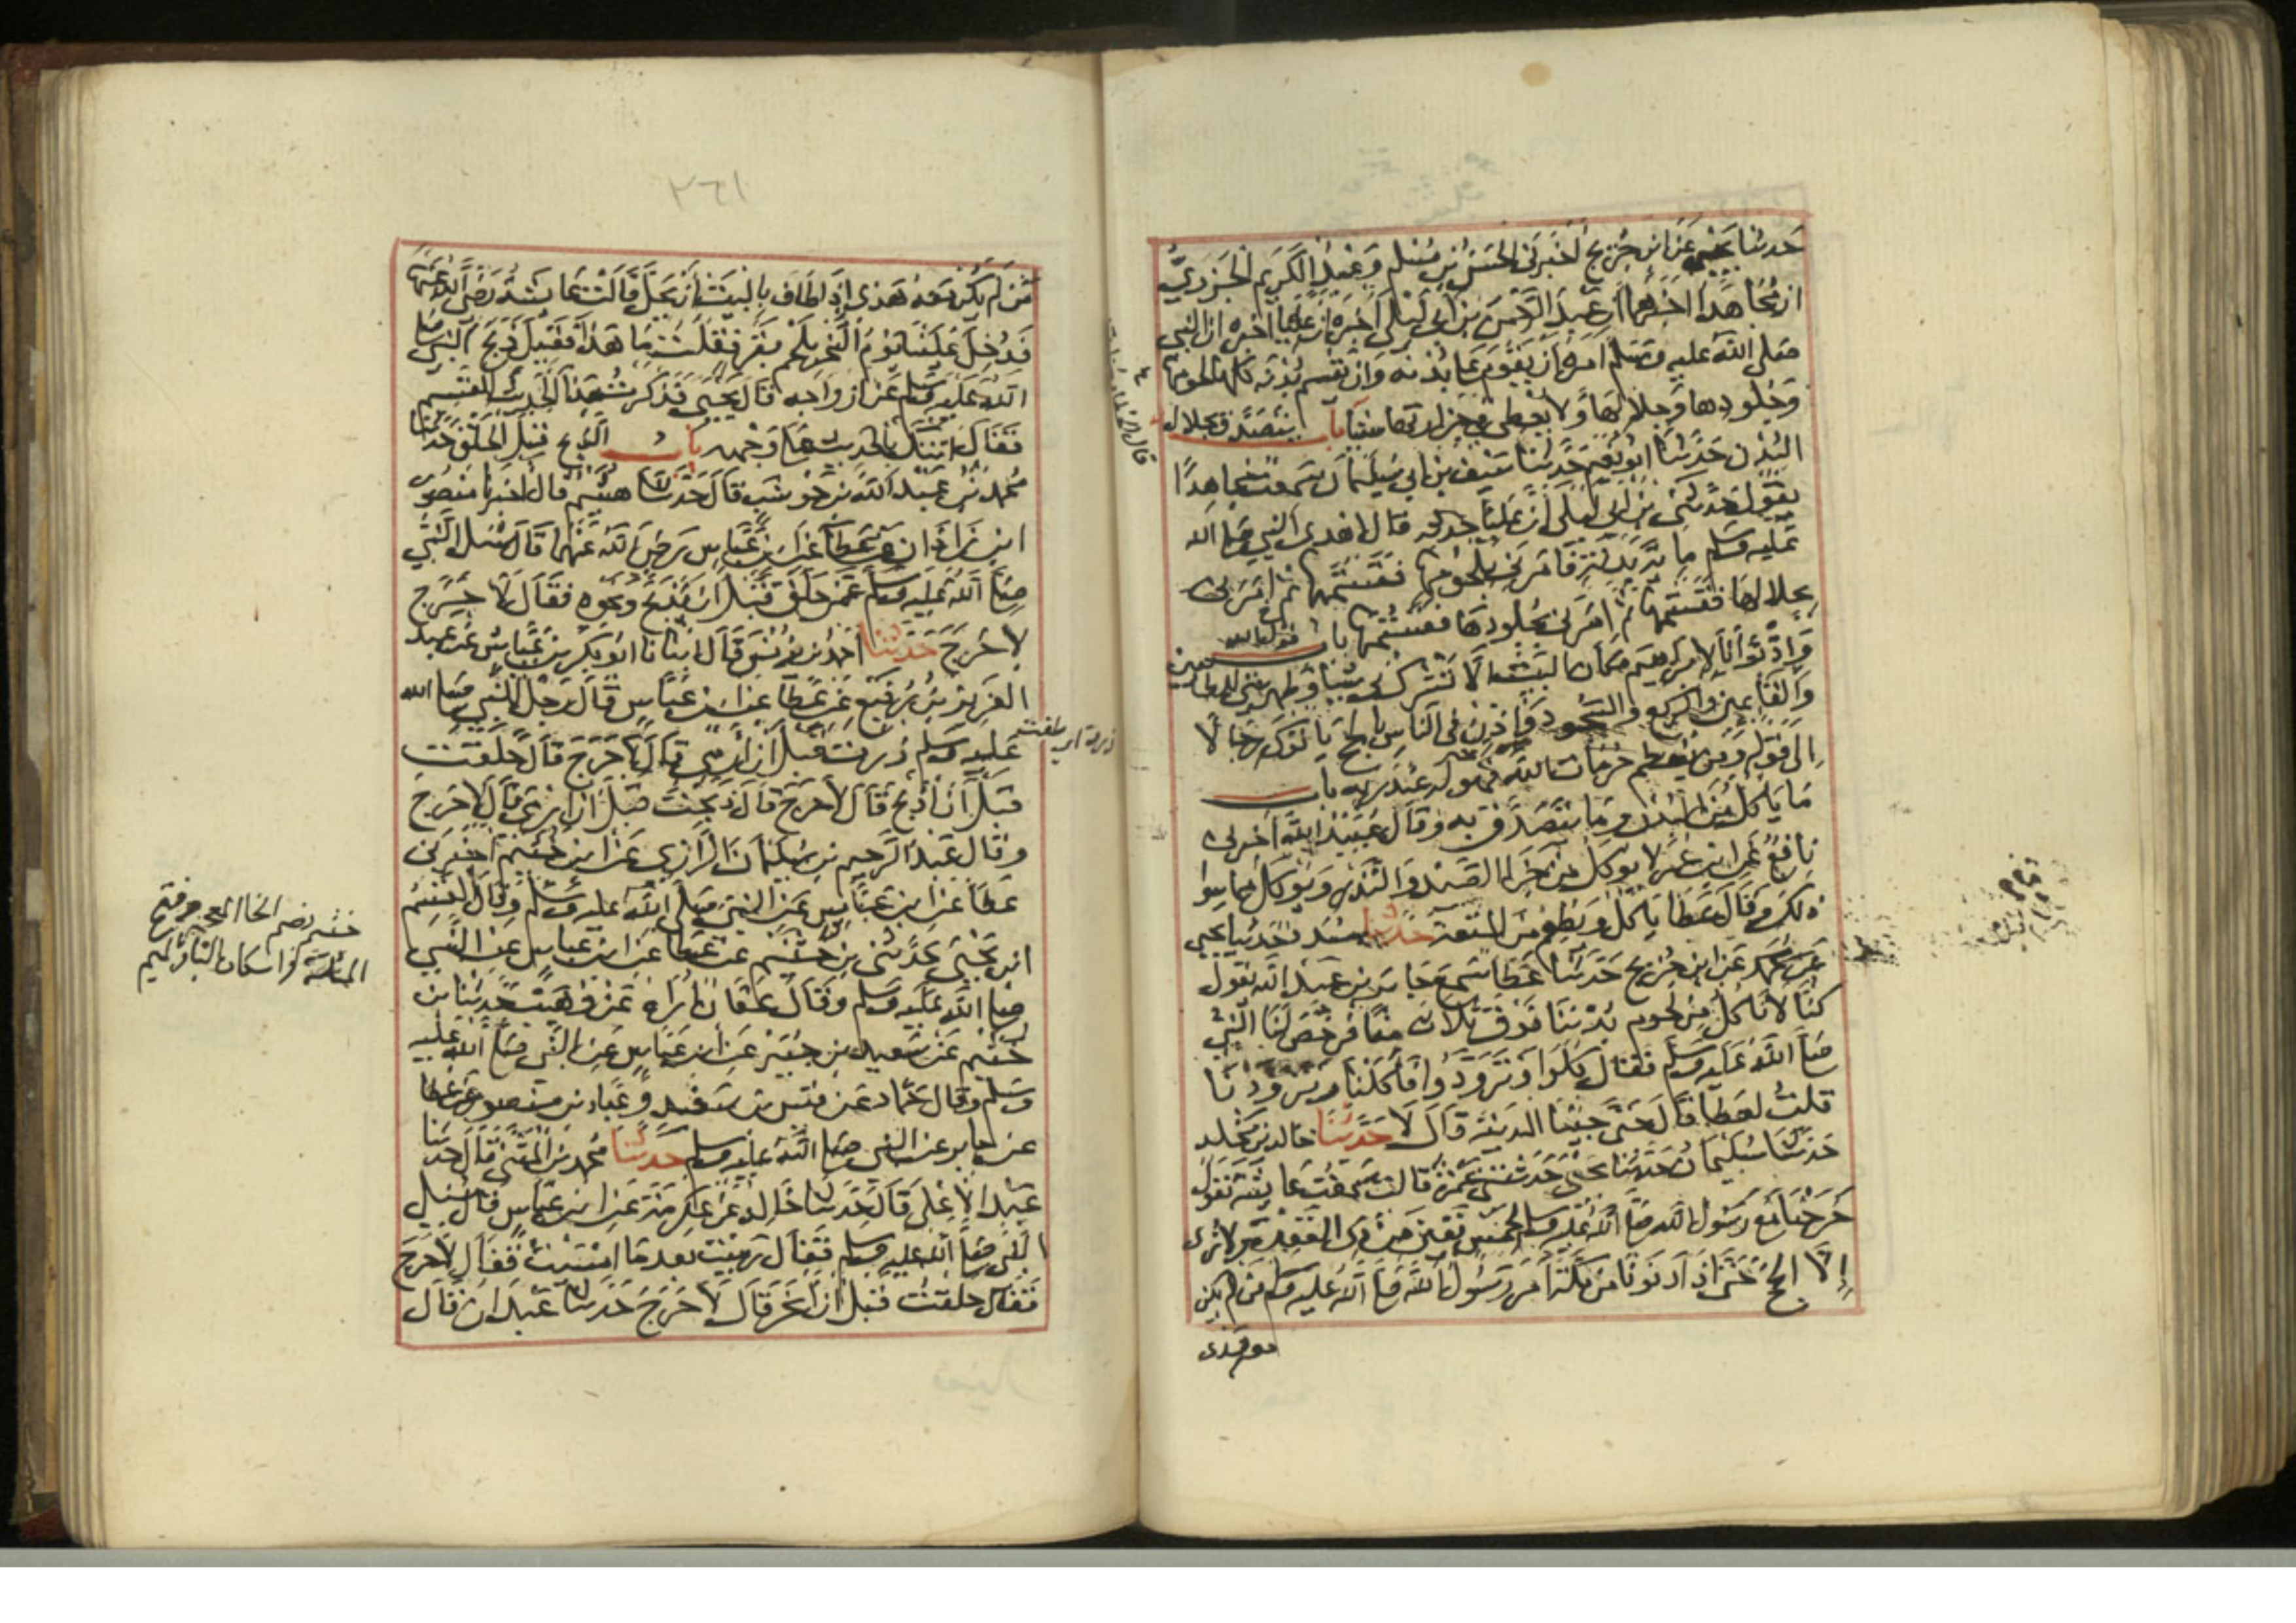 حدثنا يحيى عن ابن جريج اخبرني الحسن بن مسلم وعبد الكريم الجزري
ان مجاهدا اخبرهما ان عبد الرحمن بن ابي ليلى اخبره ان عليا اخبره ان النبي
صلى الله عليه وسلم امره ان يقوم على بدنه وان يقسم بدنه كلها لحومها
وجلودها وجلالها ولا يعطي في جزارتها شيئا باب يتصدق بجلال
البدن حدثنا ابو نعيم حدثنا سيف بن ابي سليمان سمعت مجاهدا
يقول حدثني بن ابي ليلى ان عليا حدثه قال اهدى النبي صلى الله
عليه وسلم ماية بدنة فامرني بلحومها فقسمتها ثم امرني
بجلالها فقسمتها ثم امرني بجلودها فقسمتها باب قول الله
واذ بوانا لابراهيم مكان البيت ان لا تشرك بي شيا وطهر بيتي للطايفين
والقايمين والركع والسجود واذن في الناس بالحج ياتوك رجالا
الى قوله ومن يعظم حرمات الله فهو خير له عند ربه باب
ما ياكل من البدن وما يتصدق به وقال عبيد الله اخبرني
نافع عن ابن عمر لا يوكل من جزا الصيد والنذر ويوكل مما سوا
ذلك وقال عطا ياكل ويطعم من المتعة حدثنا مسدد حدثنا يحيى
عن ابن جريج حدثنا عطا سمع جابر بن عبد الله يقول
كنا لا ناكل من لحوم بدننا فوق ثلاث منا فرخص لنا النبي
صلى الله عليه وسلم فقال كلوا وتزودوا فاكلنا وتزودنا
قلت لعطا اقال حتى جينا المدينة قال لا حدثنا خالد بن مخلد
حدثنا سليمان حدثنا يحيى حدثتني عمرة قالت سمعت عايشة تقول
خرجنا مع رسول الله صلى الله عليه وسلم لخمس بقين من ذي القعدة ولا نرى
الا الحج حتى اذا دنونا من مكة امر رسول الله صلى الله عليه وسلم من لم يكن
معه هدى
٢٦١
من لم يكن معه هدي اذا طاف بالبيت ان يحل قالت عايشة رضي الله عنها
فدخل علينا يوم النحر بلحم بقر فقلت ما هذا فقيل ذبح النبي صلى
الله عليه وسلم عن ازواجه قال يحيى فذكرت هذا الحديث للقسم
فقال اتتك بالحديث على وجهه باب الذبح قبل الحلق حدثنا
محمد بن عبد الله بن حوشب قال حدثنا هشيم قال اخبرنا منصور
ابن زاذان عن عطا عن ابن عباس رضي الله عنهما قال سئل النبي
صلى الله عليه وسلم عمن حلق قبل ان يذبح ونحوه فقال لا حرج
لا حرج حدثنا احمد بن يونس قال انبانا ابو بكر بن عياش عن عبد
العزيز بن رفيع عن عطا عن ابن عباس قال رجل للنبي صلى الله
عليه وسلم زرت قبل ان ارمي قال لا حرج قال حلقت
قبل ان اذبح قال لا حرج قال ذبحت قبل ان ارمي قال لا حرج
وقال عبد الرحيم بن سليمان الرازي عن ابن خثيم اخبرني
عطا عن ابن عباس عن النبي صلى الله عليه وسلم وقال القسم
ابن يحيى حدثني بن خثيم عن عطا عن ابن عباس عن النبي
صلى الله عليه وسلم وقال عفان اراه عن وهيب حدثنا بن
خثيم عن سعيد بن جبير عن ابن عباس عن النبي صلى الله عليه
وسلم وقال حماد عن قيس بن سعد وعباد بن منصور عن عطا
عن جابر عن النبي صلى الله عليه وسلم حدثنا محمد بن المثنى قال حدثنا
عبد الاعلى قال حدثنا خالد عن عكرمة عن ابن عباس قال سئل
النبي صلى الله عليه وسلم فقال رميت بعد ما امسيت فقال لا حرج
فقال حلقت قبل ان انحر قال لا حرج حدثنا عبدان قال
خثيم بضم الخا المعجمة وفتح
المثلثة واسكان الياء